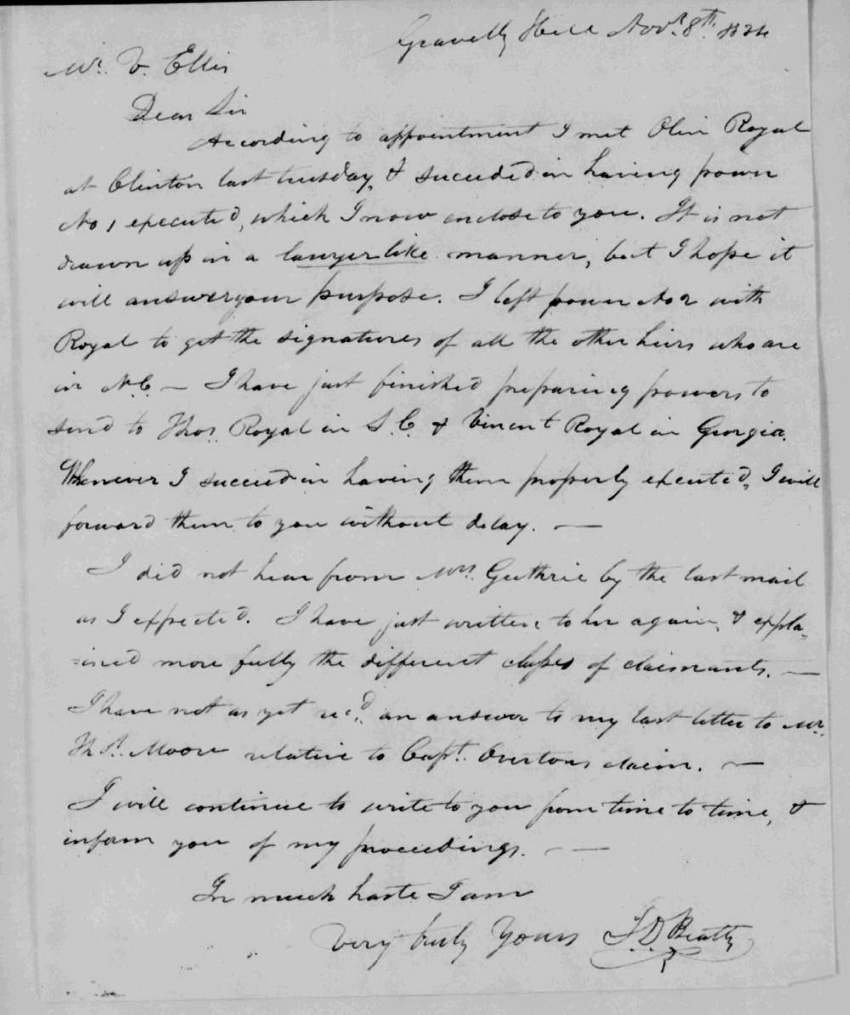 Gravelly Hill Novr. 8th. 1834
Mr. V. Ellis
Dear Sir
According to appointment I met Olin Royal
at Clinton last tuesday, & succeeded in having power
No 1 executed, which I now enclose to you. It is not
drawn up in a lawyer like manner, but I hope it
will answer your purpose. I left power No 2 with
Royal to get the signatures of all the other heirs who are
in N.C. — I have just finished preparing powers to
send to Thos. Royal in S.C. & Vincent Royal in Georgia.
Whenever I succeed in having them properly executed, I will
forward them to you without delay. —
I did not hear from Mrs. Guthrie by the last mail
as I expected. I have just written to her again, & expla-
-ined more fully the different classes of claimants. —
I have not as yet recd. an answer to my last letter to Mr.
Th. P. Moore relative to Capt. Overtons claim. —
I will continue to write to you from time to time, &
inform you of my proceedings. — —
In much haste I am
Very truly Yours